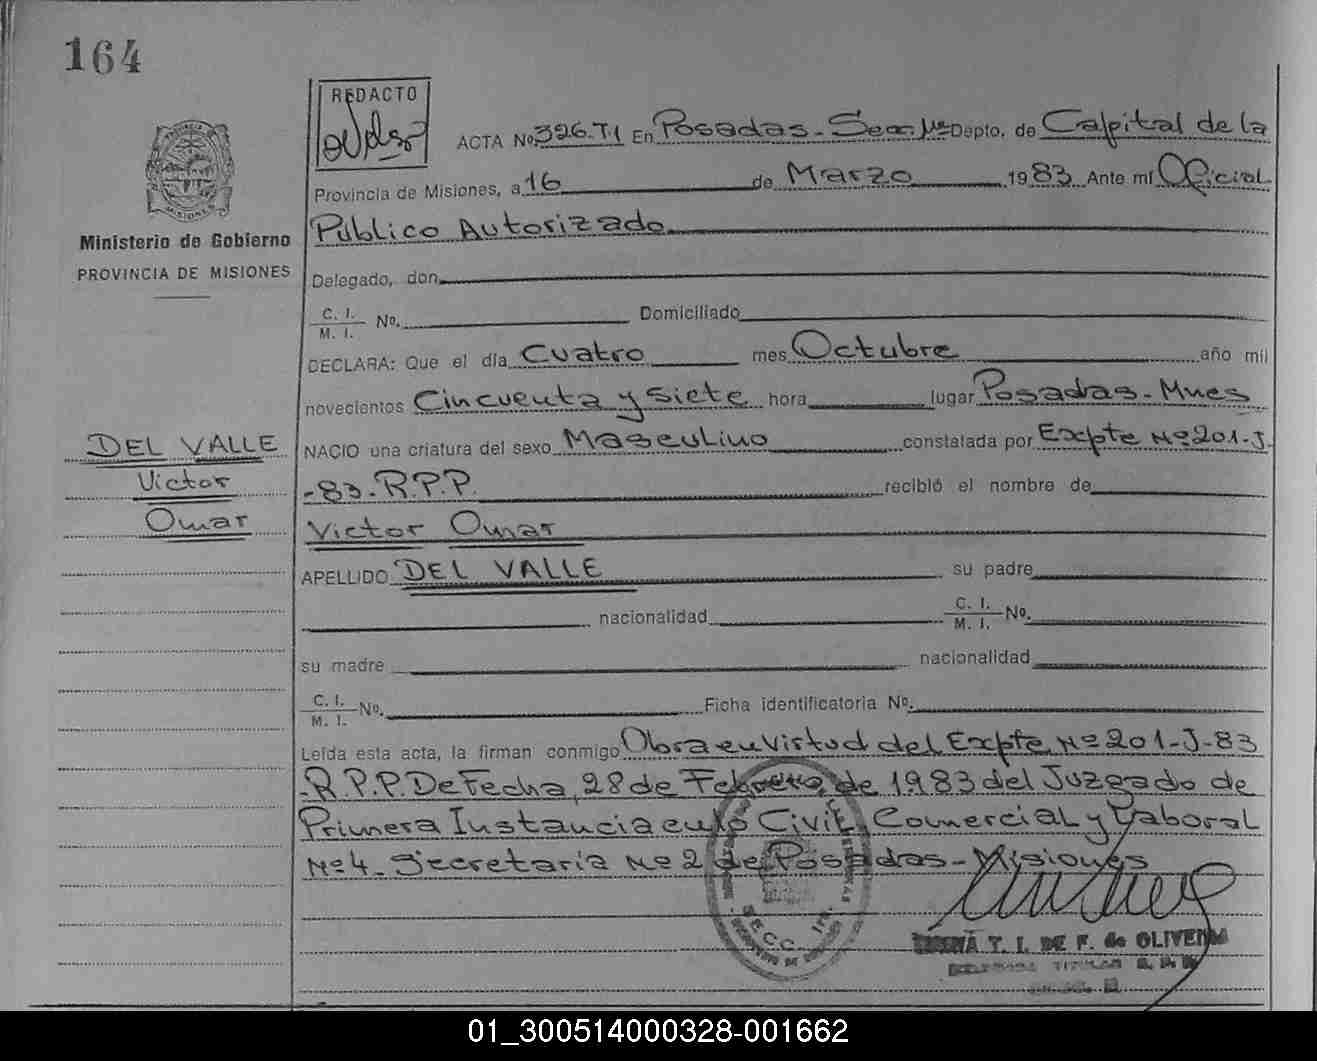 164
REDACTO
ACTA No. 326-T.I En Posadas - Secc. 1ª Depto. de Capital de la
Provincia de Misiones, a 16 de Marzo 1983 Ante mí Oficial
Ministerio de Gobierno
PROVINCIA DE MISIONES
Público Autorizado
Delegado, don
C. I.
M. I. No. Domiciliado
DECLARA: Que el día Cuatro mes Octubre año mil
novecientos Cincuenta y siete hora lugar Posadas - Mnes
DEL VALLE
Victor
Omar
NACIO una criatura del sexo Masculino constatada por Expte Nº 201-J.
-83-R.P.P. recibió el nombre de
Victor Omar
APELLIDO DEL VALLE su padre
nacionalidad C. I.
M. I. No.
su madre nacionalidad
C. I.
M. I. No. Ficha identificatoria No.
Leída esta acta, la firman conmigo Obra en virtud del Expte Nº 201-J-83
-R.P.P. De Fecha, 28 de Febrero de 1983 del Juzgado de
Primera Instancia en lo Civil, Comercial y Laboral
Nº 4 Secretaría Nº 2 de Posadas - Misiones
SECC. 1ra.
T. I. DE F. de OLIVEIRA
TITULAR R. P. P.
01_300514000328-001662